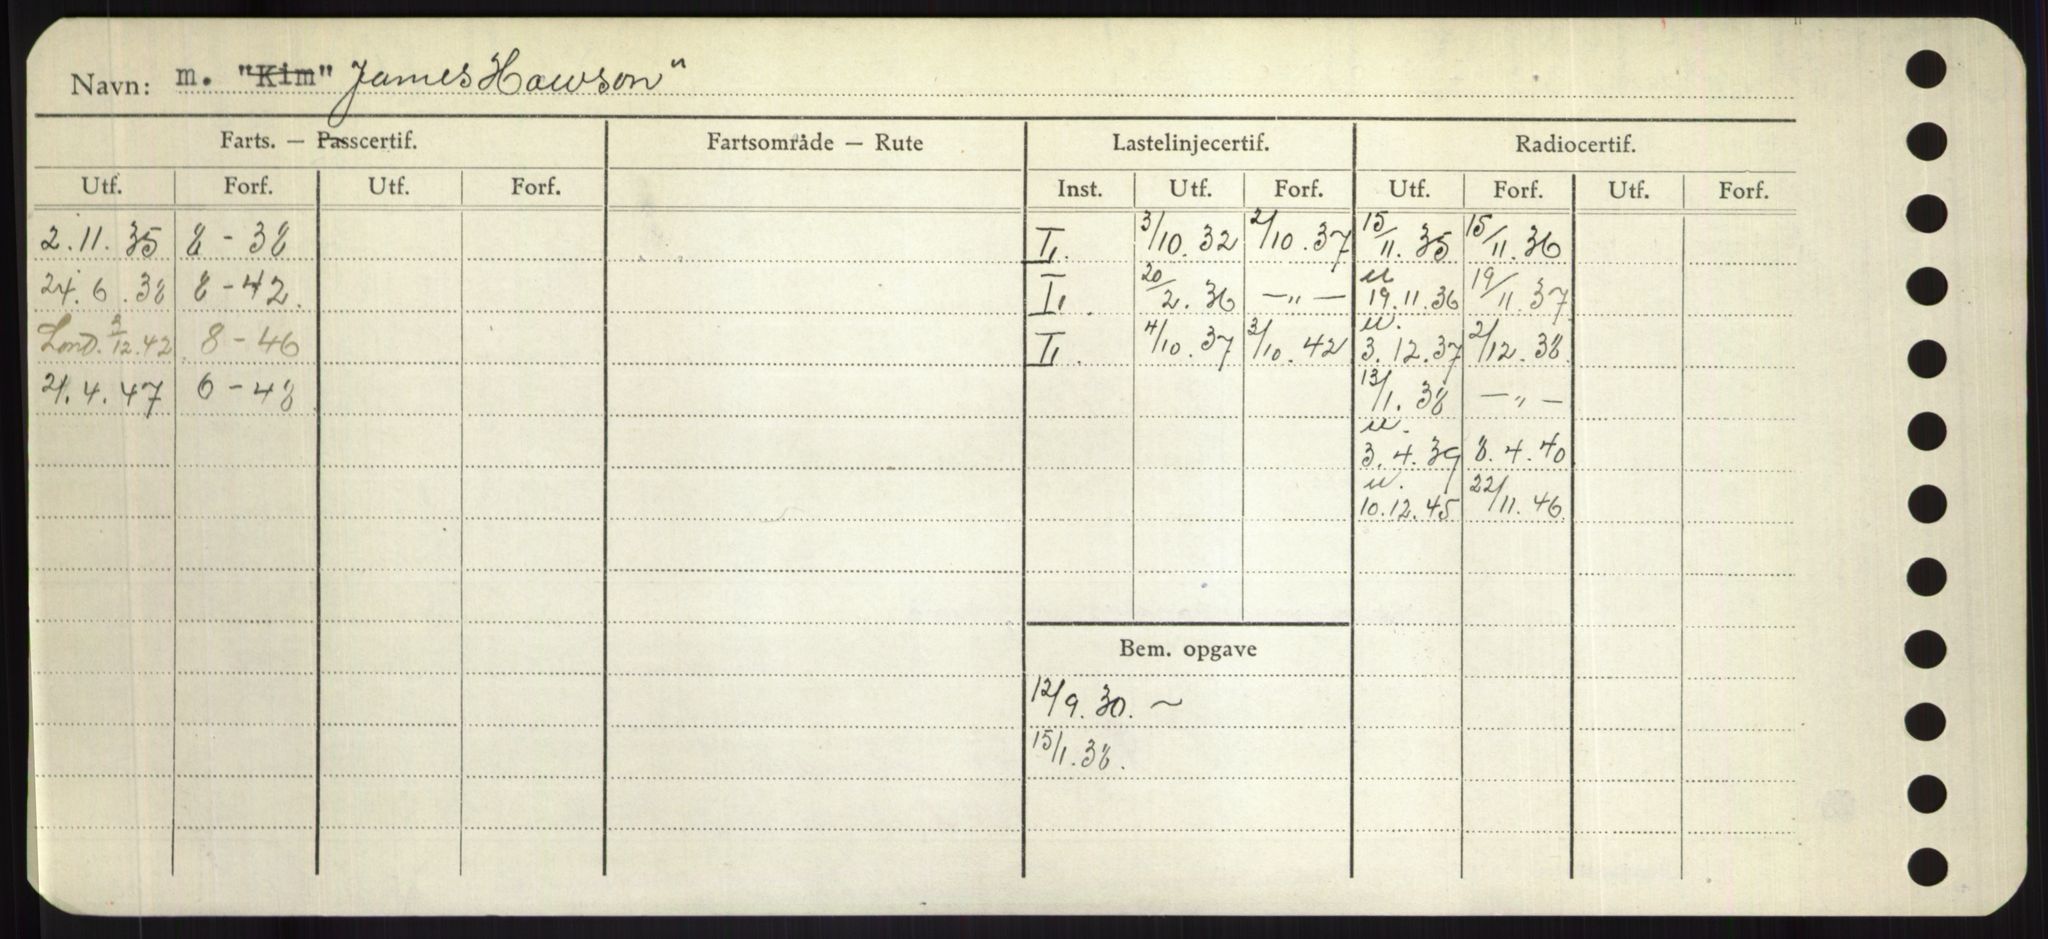 Navn: m. "Kim" James Hawson"
Farts. — Passcertif. Fartsområde — Rute Lastelinjecertif. Radiocertif.
Utf. Forf. Utf. Forf. Inst. Utf. Forf. Utf. Forf. Utf. Forf.
2.11.35 8-38 I. 3/10.32 2/10.37 15/11.35 15/11.36
24.6.38 8-42. I. 20/2.36 —„— u 19.11.36 19/11.37
Lond. 2/12.42 8-46 I. 4/10.37 3/10.42 u. 3.12.37 2/12.38
21.4.47 6-48 13/1.38 —„—
u. 3.4.39 8.4.40
u. 10.12.45 22/11.46
Bem. opgave
12/9.30. ~
15/1.38.